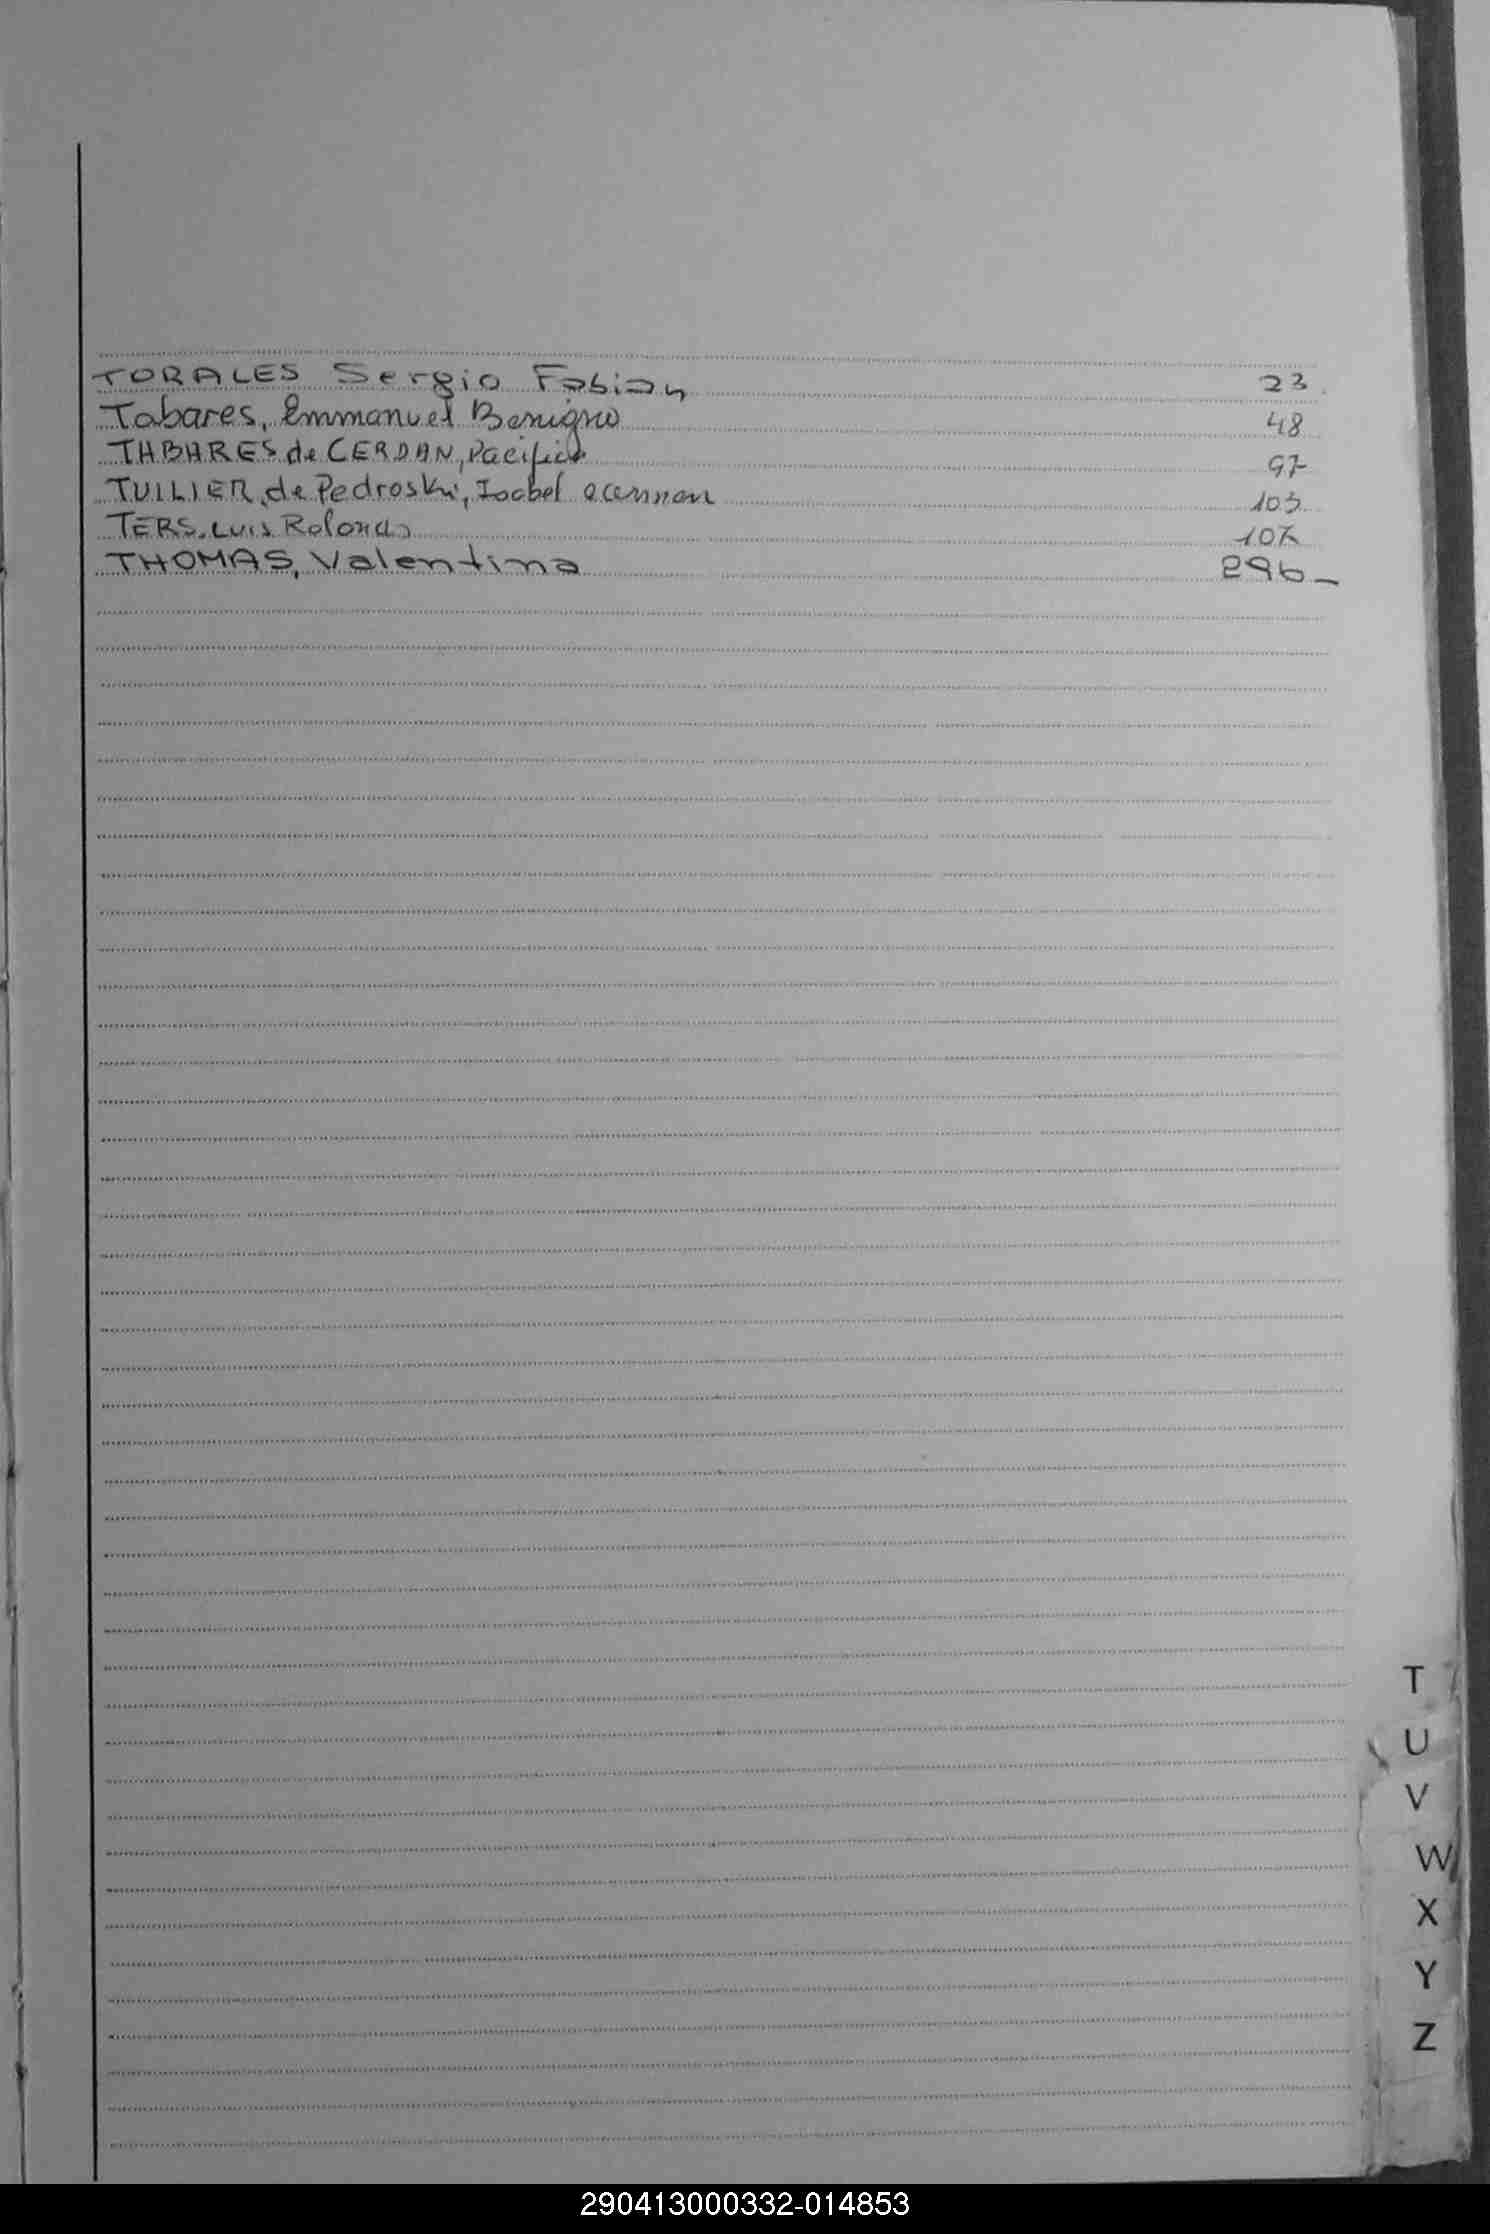 TORALES Sergio Fabian 23
Tabares, Emmanuel Benigno 48
TABARES de CERDAN, Pacifica 97
TUILIER de Pedroski, Isabel 103
TERS, Luis Rolando
THOMAS, Valentina 296
T
U
V
W
X
Y
Z
290413000332-014853